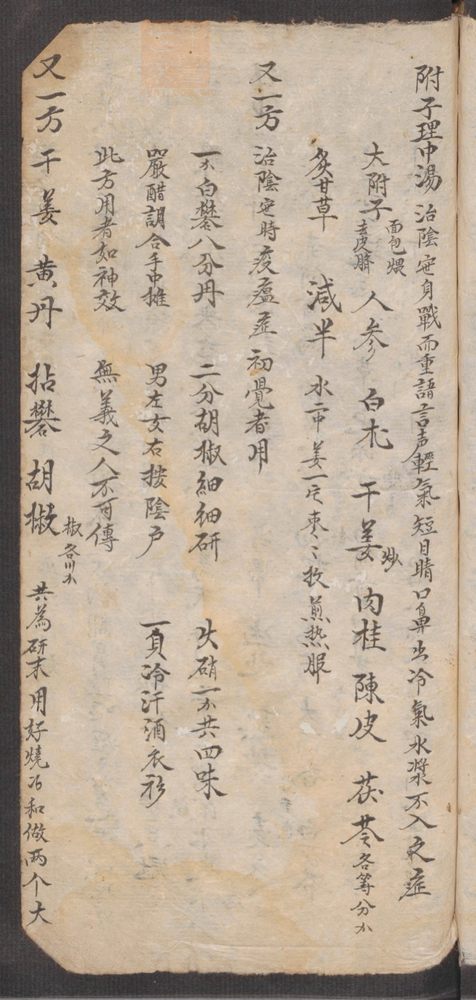 附子理中湯 治陰症身戰而重語言声輕氣短目睛口鼻出冷氣水漿不入之症
大附子 面包煨去皮臍 人参 白朮 干姜 炒 肉桂 陳皮 茯苓 各等分
炙甘草 減半 水二中姜一片枣二枚煎热服
又一方 治陰症時疫瘟症初覺者用
一个白礬八分丹 二分胡椒細細研 火硝一个共四味
嚴醋調合手中摧 男左女右按陰户 一負冷汗洒衣衫
此方用者如神效 無義之人不可傳
又一方 干姜 黄丹 拈礬 胡椒 椒各川 共為研末用好燒酒和做两个大